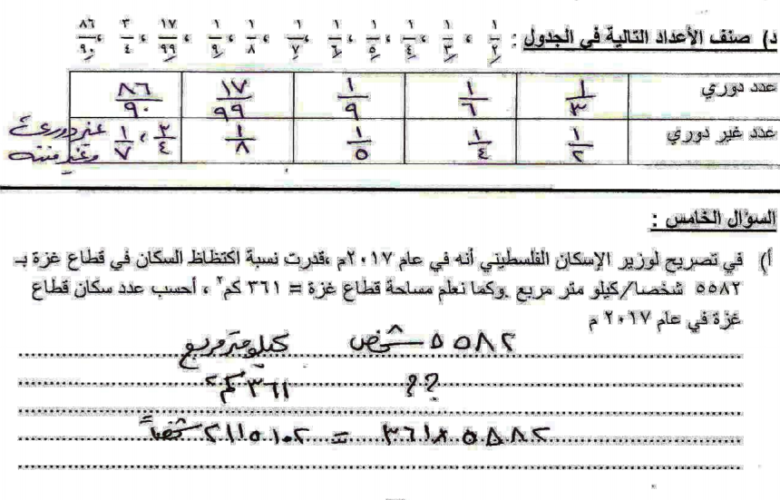 د) صنف الأعداد التالية في الجدول : ١/٢ ، ١/٣ ، ١/٤ ، ١/٥ ، ١/٦ ، ١/٧ ، ١/٨ ، ١/٩ ، ١٧/٩٩ ، ٣/٤ ، ٨٦/٩٠
عدد دوري ١/٣ ١/٦ ١/٩ ١٧/٩٩ ٨٦/٩٠
عدد غير دوري ١/٢ ١/٤ ١/٥ ١/٨ ٣/٤ ، ١/٧ غير دوري
وغير منته
السؤال الخامس :
أ) في تصريح لوزير الإسكان الفلسطيني أنه في عام ٢٠١٧م ،قدرت نسبة اكتظاظ السكان في قطاع غزة بـ
٥٥٨٢ شخصا/كيلو متر مربع .وكما نعلم مساحة قطاع غزة = ٣٦١ كم٢ ، أحسب عدد سكان قطاع
غزة في عام ٢٠١٧ م
٥٥٨٢ شخص كيلومتر مربع
؟؟ ٣٦١ كم٢
٣٦١×٥٥٨٢ = ٢١١٥١٠٢ شخصاً